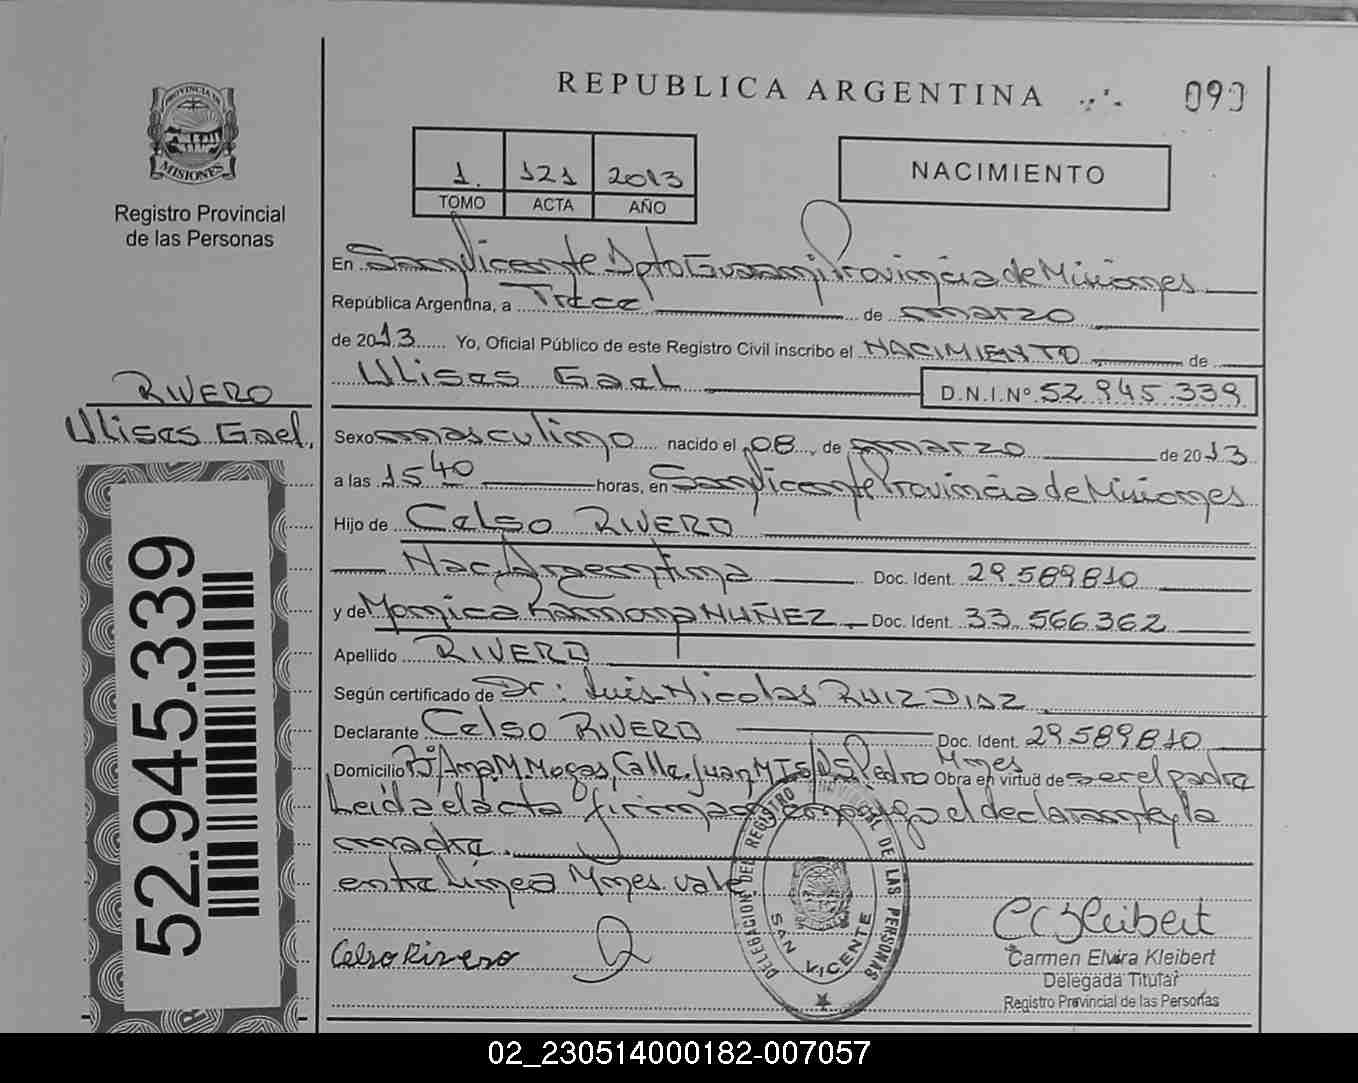 REPUBLICA ARGENTINA
090
PROVINCIA DE
MISIONES
Registro Provincial
de las Personas
1. 121 2013
TOMO ACTA AÑO
NACIMIENTO
En San Vicente Dpto Guaraní Provincia de Misiones
República Argentina, a Trece de marzo
de 2013 Yo, Oficial Público de este Registro Civil inscribo el NACIMIENTO de
Ulises Gael D.N.I.Nº 52.945.339
RIVERO
Ulises Gael.
Sexo masculino nacido el 08 de marzo de 2013
a las 15 40 horas, en San Vicente Provincia de Misiones
Hijo de Celso RIVERO
Nac. Argentina Doc. Ident. 29.589.810
y de Monica Ramona NUÑEZ Doc. Ident. 33.566.362
Apellido RIVERO
Según certificado de Dr. Luis Nicolas RUIZ DIAZ
Declarante Celso RIVERO Doc. Ident. 29.589.810
Mnes
Domicilio Bº Calle Juan M S. Pedro Obra en virtud de ser el padre
Leida el acta firma conmigo el declarante y la
madre.
entre linea Mnes. vale
Celso Rivero
DELEGACION DEL REGISTRO PROVINCIAL DE LAS PERSONAS
SAN VICENTE
C C Kleibert
Carmen Elvira Kleibert
Delegada Titular
Registro Provincial de las Personas
52.945.339
02_230514000182-007057